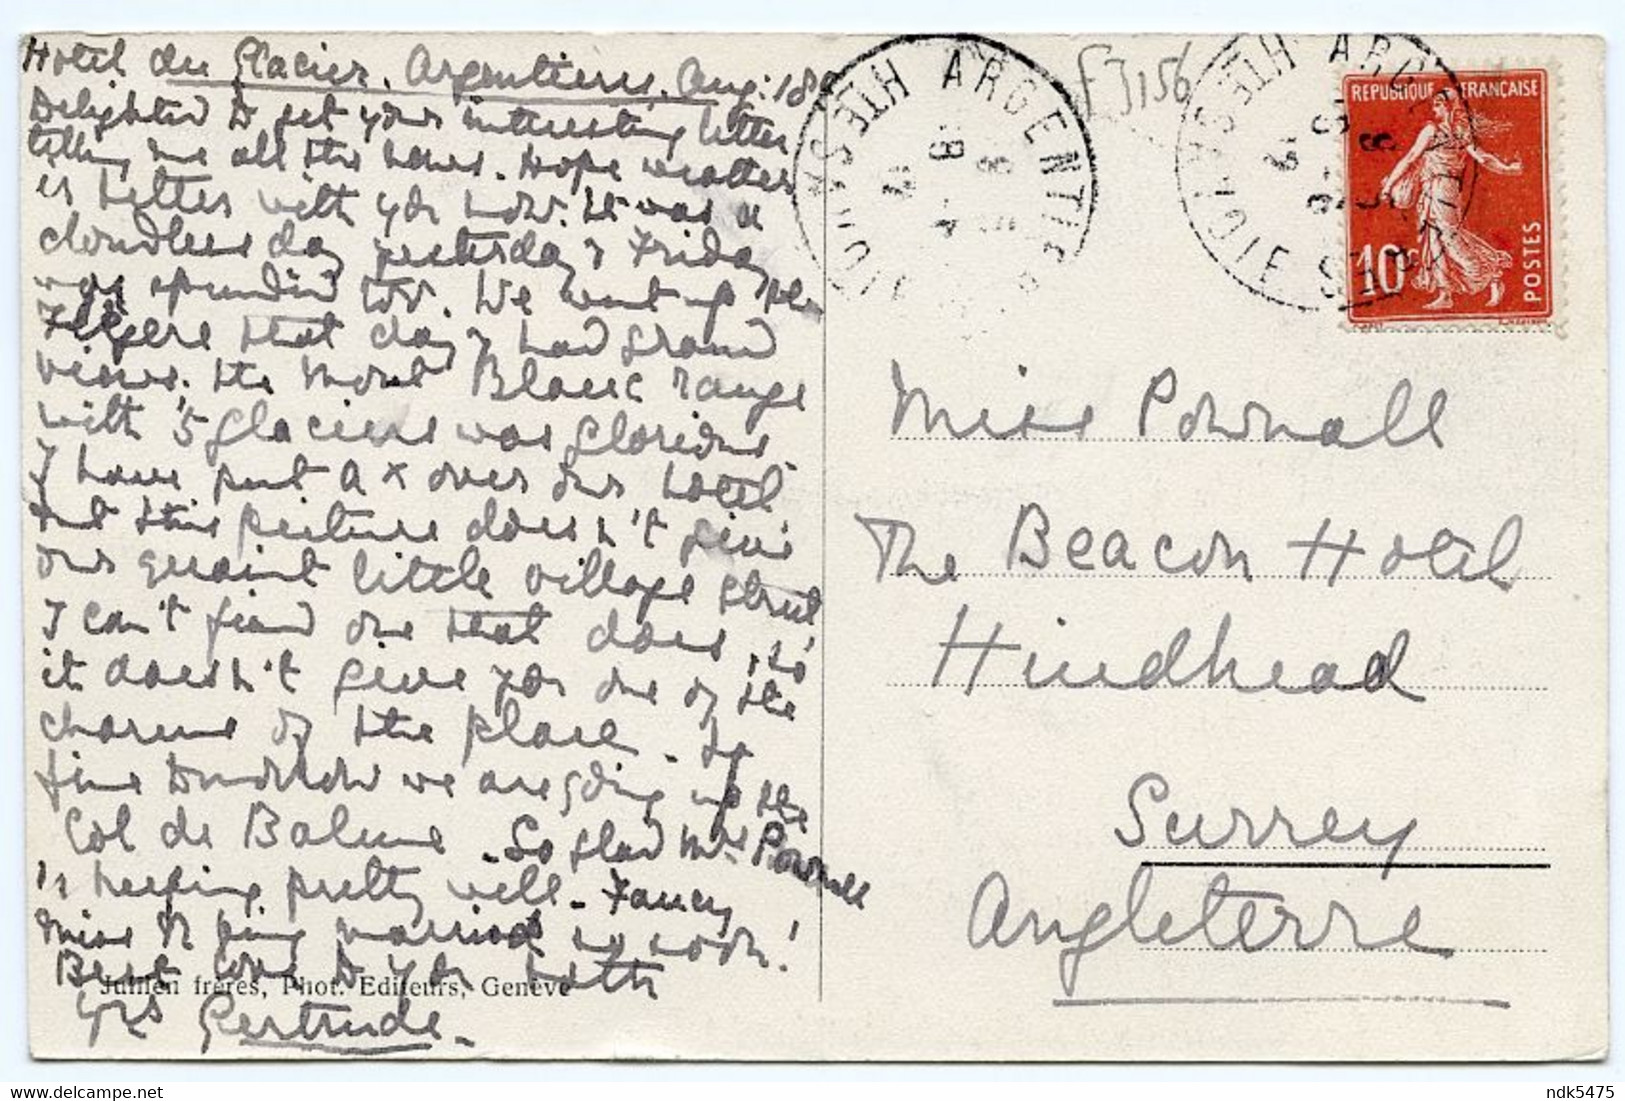 Hotel du Glacier. Argentiere. Aug: 18
Delighted to get your interesting letter
telling me all the news. Hope weather
is better with you now. It was a
cloudless day yesterday & Friday
was splendid too. We went up the
Flégère that day & had grand
views. The Mont Blanc range
with 5 glaciers was glorious.
I have put a x over our hotel
but this picture doesn't give
our quaint little village street
I can't find one that does, so
it doesn't give you one of the
charms of the place. If
fine tomorrow we are going up the
Col de Balme. So glad Mrs Pownall
is keeping pretty well. Fancy
Miss being married so soon!
Best love to you both
Yrs Gertrude.
Jullien frères, Phot. Editeurs, Genève
ARGENTIERE
HTE SAVOIE
£3156
ARGENTIERE
HTE SAVOIE
REPUBLIQUE FRANÇAISE
10
POSTES
Miss Pownall
The Beacon Hotel
Hindhead
Surrey
Angleterre
ndk5475